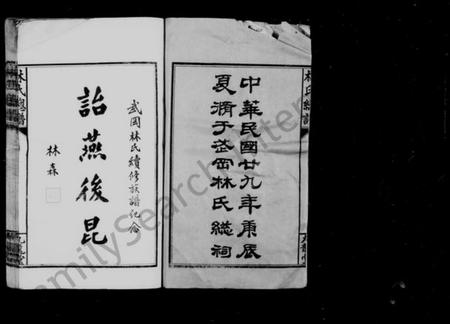 中華民國廿九年庚辰
夏濟于武岡林氏總祠
武岡林氏續修族譜紀念
詒燕後昆
林森
林氏總譜
FamilySearch